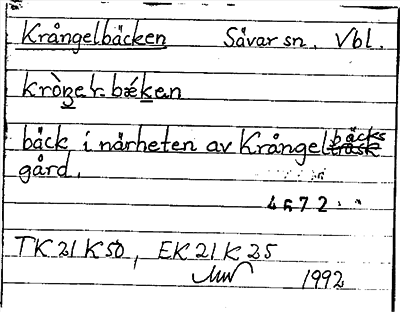 Krångelbäcken Sävar sn. Vbl.
bäck i närheten av Krångelbäcks
gård.
4672
TK 21 K S0, EK 21 K 2S
1992